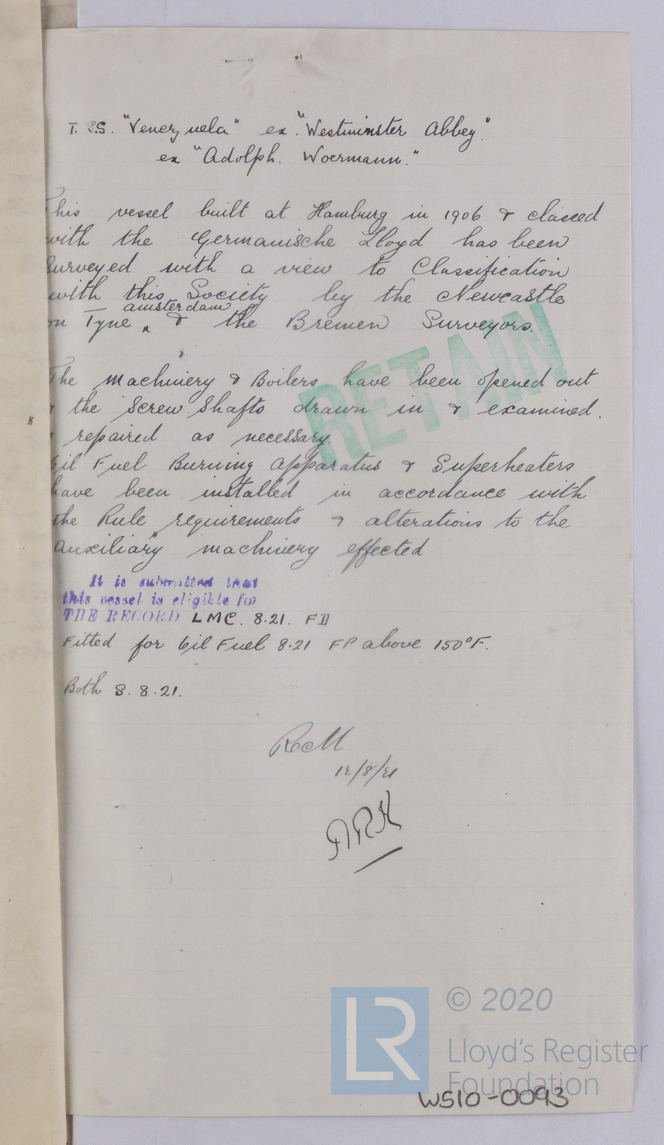 T. SS. "Venezuela" ex "Westminster Abbey"
ex "Adolph. Woermann."
This vessel built at Hamburg in 1906 & classed
with the Germanische Lloyd has been
surveyed with a view to Classification
with this Society by the Newcastle
on Tyne, Amsterdam & the Bremen Surveyors.
RETAIN
The machinery & Boilers have been opened out
& the Screw Shafts drawn in & examined.
& repaired as necessary.
Oil Fuel Burning apparatus & Superheaters
have been installed in accordance with
the Rule requirements & alterations to the
auxiliary machinery effected
It is submitted that
this vessel is eligible for
THE RECORD LMC. 8.21. FD
Fitted for Oil Fuel 8.21 FP above 150°F.
Both S. 8.21.
12/8/21
ARK
LR
© 2020
Lloyd's Register
Foundation
W510-0093